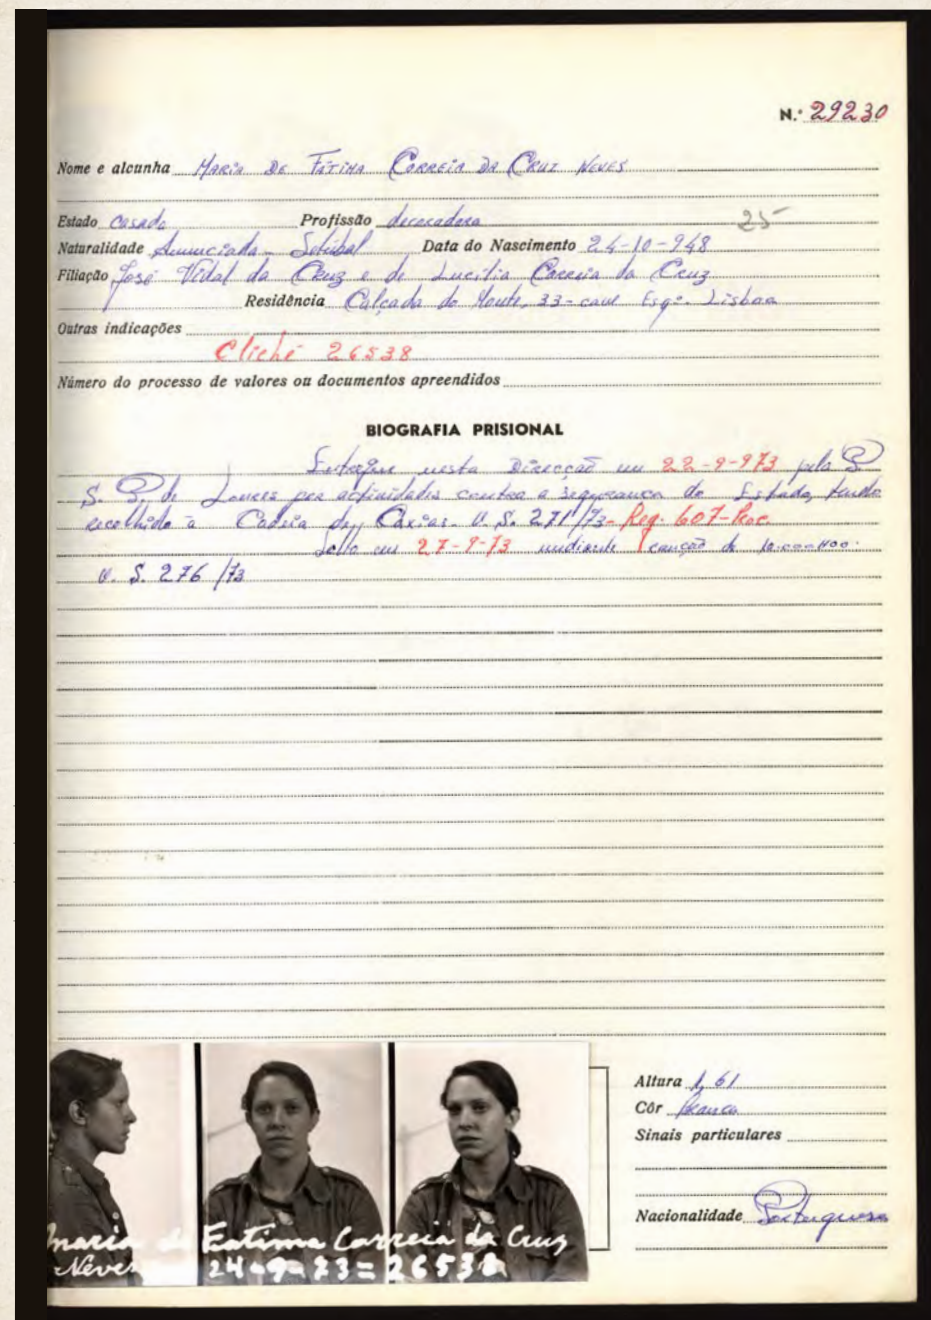 N.º 29230
Nome e alcunha Maria de Fátima Correia da Cruz Neves
Estado casada Profissão decoradora 25
Naturalidade Anunciada - Setúbal Data do Nascimento 24-10-948
Filiação José Vidal da Cruz e de Lucília Correia da Cruz
Residência Calçada do Monte, 33-cave Esqº. Lisboa
Outras indicações
Cliché 26538
Número do processo de valores ou documentos apreendidos
BIOGRAFIA PRISIONAL
Entregue nesta Direcção em 22-9-973 pela P
S. P. de Loures por actividades contra a segurança do Estado, tendo
recolhido à Cadeia de Caxias. O. S. 271/73 - Reg. 607-
Solto em 27-9-73 mediante caução de 10.000$00.
O. S. 276/73
Altura 1,61
Côr branca
Sinais particulares
Nacionalidade Portuguesa
Maria de Fatima Correia da Cruz
Neves 24-9-73=26538